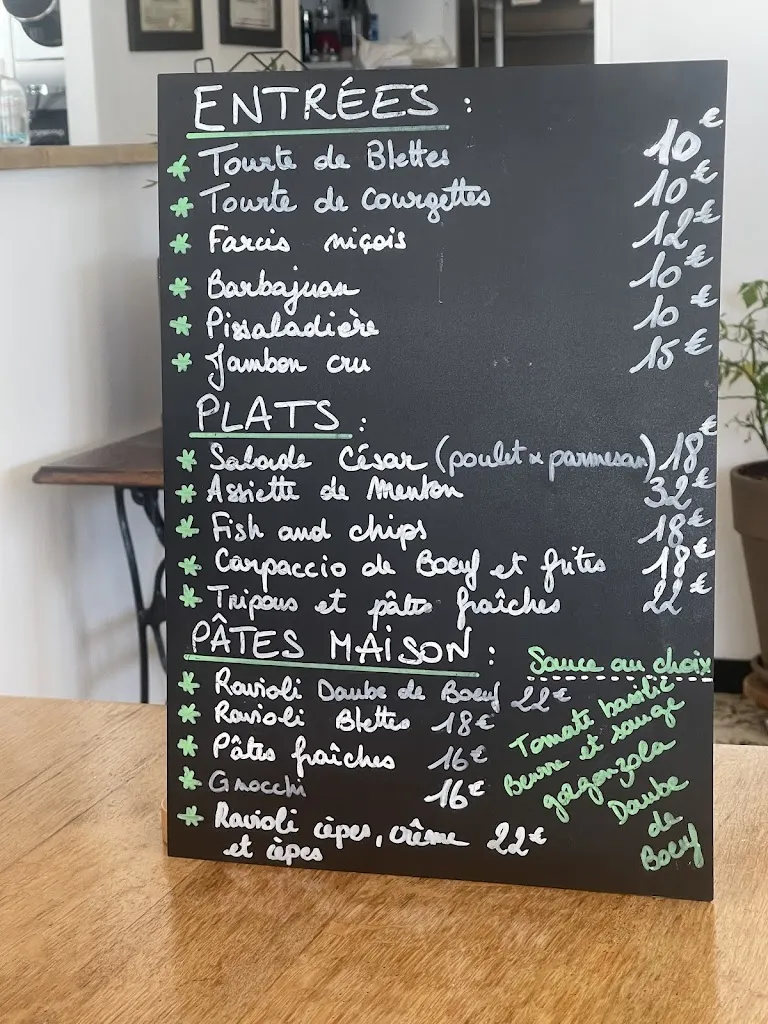 ENTRÉES :
* Tourte de Blettes 10€
* Tourte de Courgettes 10€
* Farcis niçois 12€
* Barbajuan 10€
* Pissaladière 10€
* Jambon cru 15€
PLATS :
* Salade César (poulet & parmesan) 18€
* Assiette de Menton 32€
* Fish and chips 18€
* Carpaccio de Boeuf et frites 18€
* Tripous et pâtes fraîches 22€
PÂTES MAISON :
* Ravioli Daube de Boeuf 22€
* Ravioli Blettes 18€
* Pâtes fraîches 16€
* Gnocchi 16€
* Ravioli cèpes, crème 22€
et cèpes
Sauce au choix
Tomate basilic
Beurre et sauge
gorgonzola
Daube
de
Boeuf